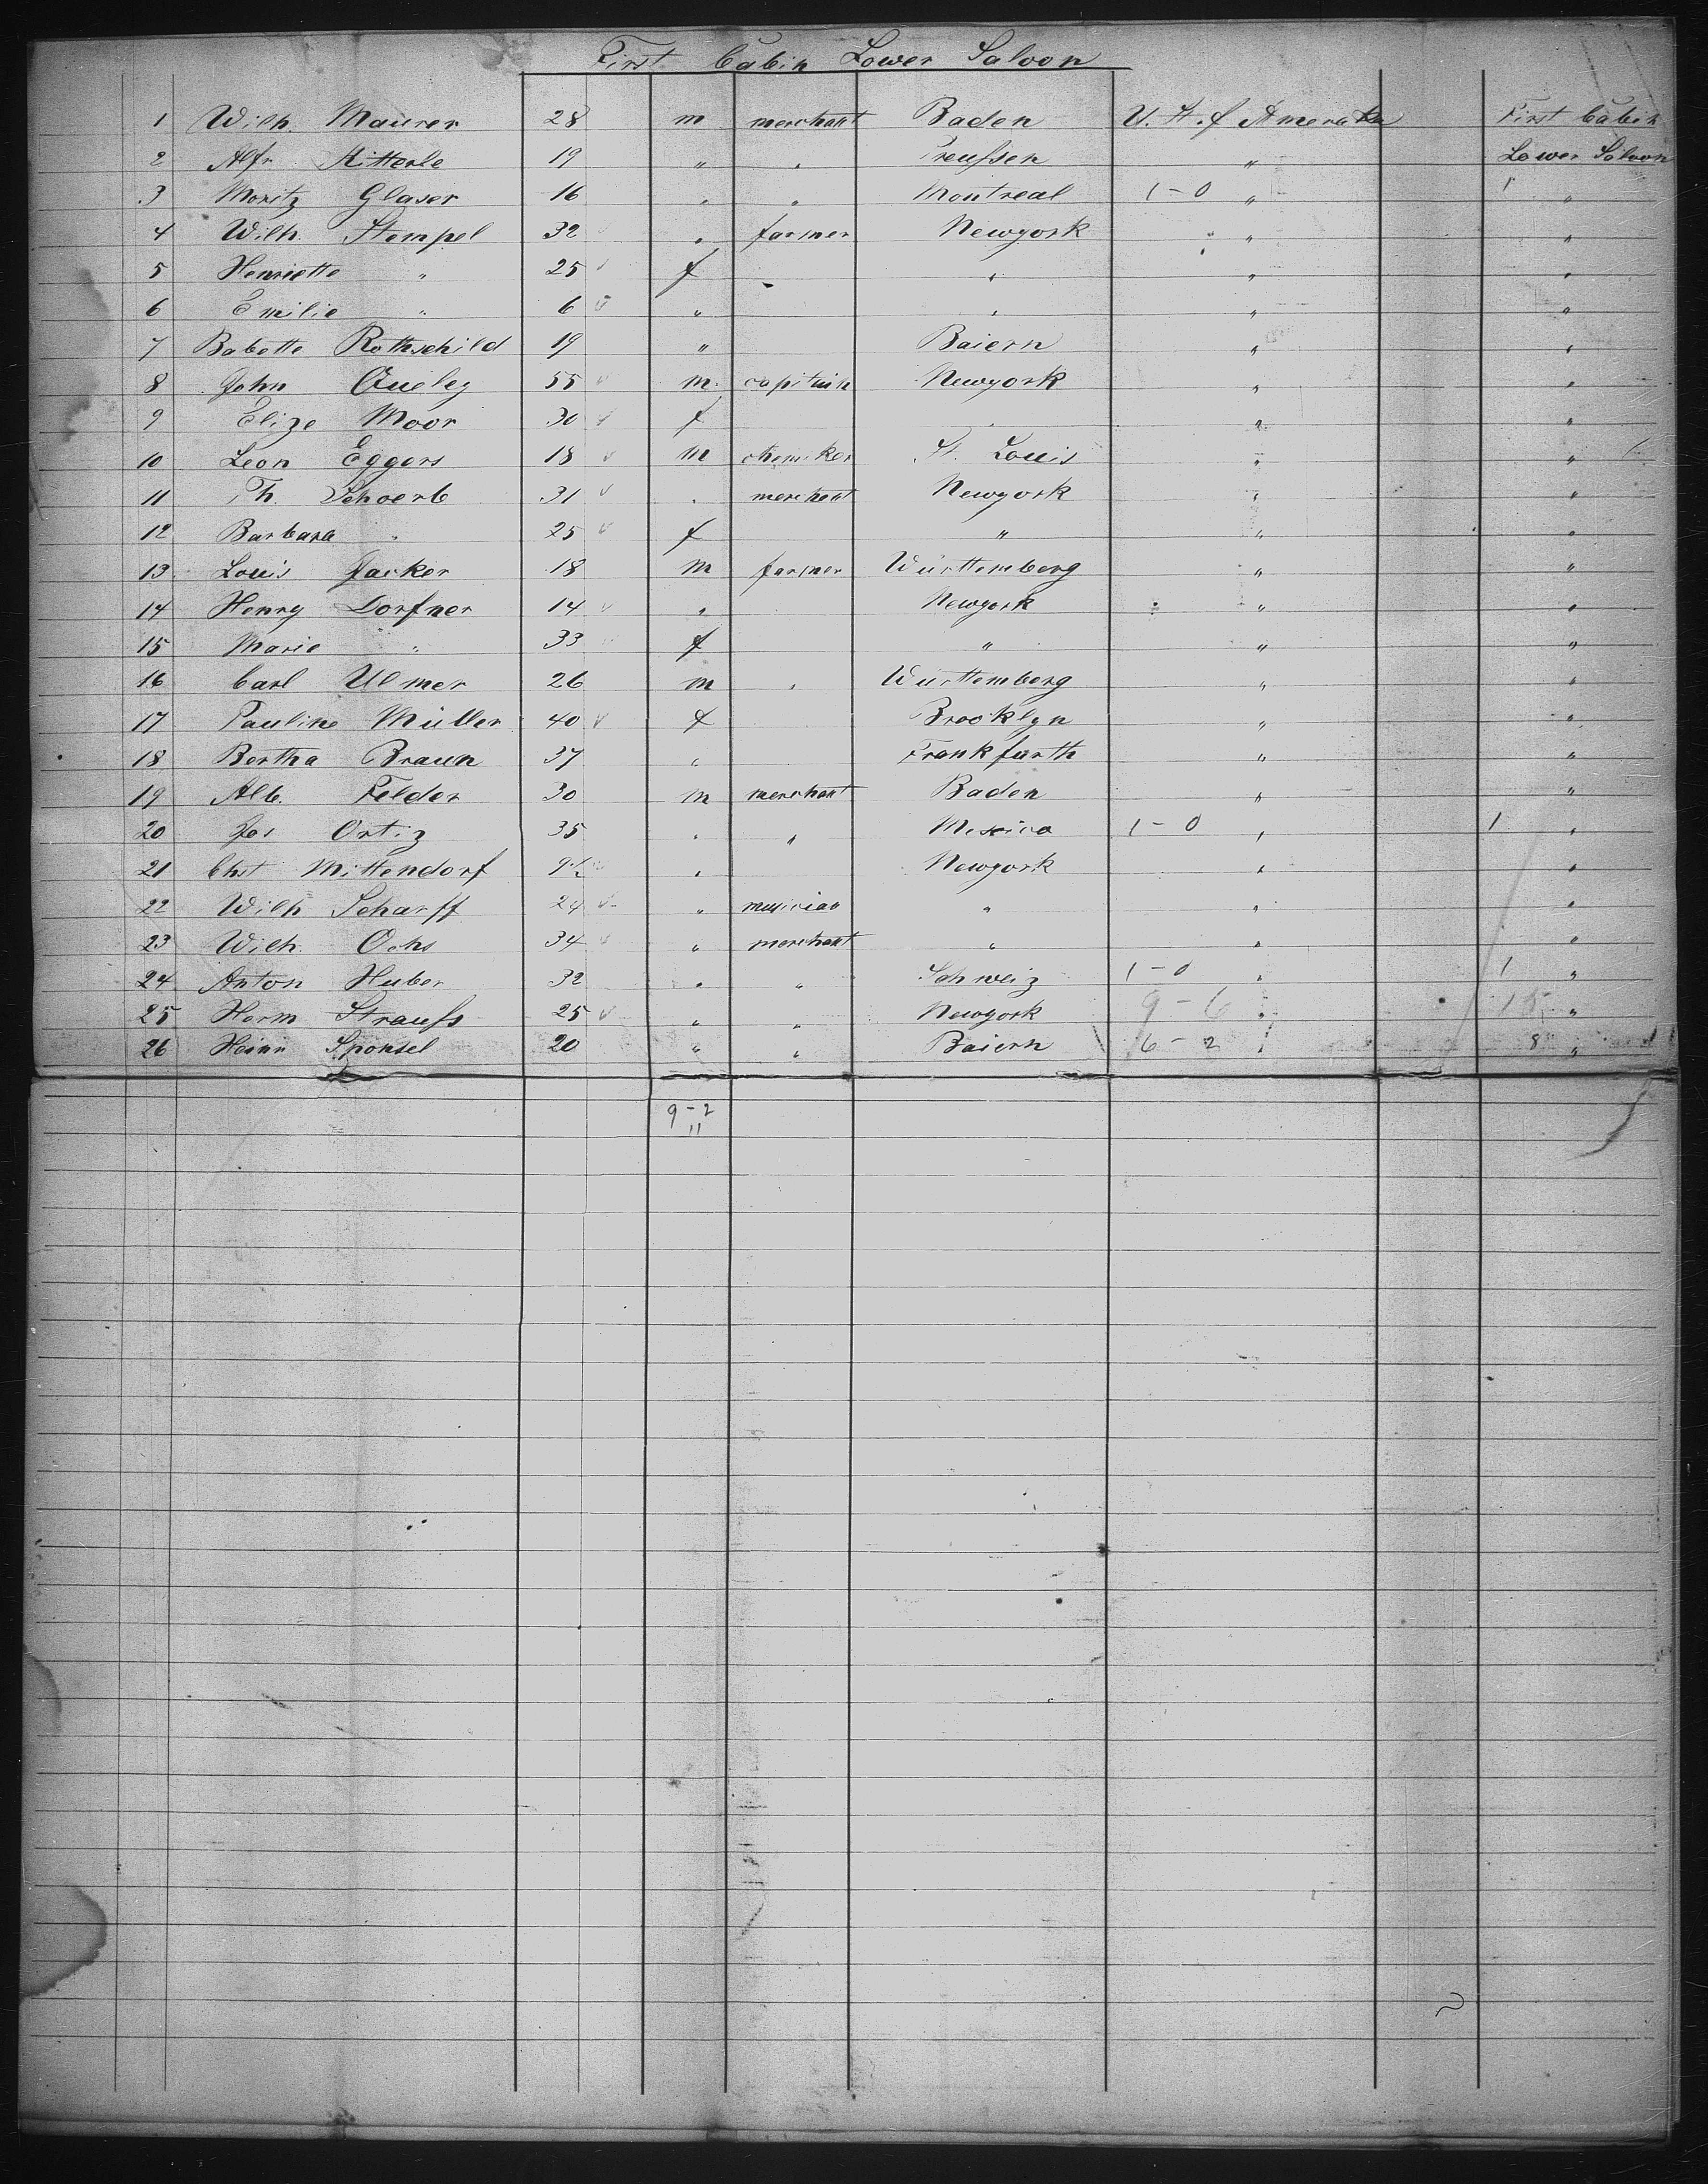 First Cabin Lower Saloon
1 Wilh. Maurer 28 m merchant Baden U. St. of Amerika First Cabin
2 Alfr. Kitterle 19 " " Preußen " Lower Saloon
3 Moritz Glaser 16 " " Montreal 1-0 " 1 "
4 Wilh. Stempel 32 " farmer Newyork " "
5 Henriette " 25 f " " "
6 Emilie " 6 " " " "
7 Babette Rothschild 19 " Baiern " "
8 John 55 m. capitain Newyork " "
9 Elize Moor 30 f " " "
10 Leon Eggers 18 m chemiker St. Louis " "
11 Th. Schoerb 31 " merchant Newyork " "
12 Barbara " 25 f " " "
13 Louis Jacker 18 m farmer Württemberg " "
14 Henry Dorfner 14 " Newyork " "
15 Marie " 33 f " " "
16 Carl Ulmer 26 m " Württemberg " "
17 Pauline Müller 40 f Brooklyn " "
18 Bertha Braun 37 " Frankfurth " "
19 Alb. Felder 30 m merchant Baden " "
20 Jos Ortiz 35 " " Mexico 1-0 " 1 "
21 Chst Mittendorf 9½ " Newyork " "
22 Wilh Scharff 24 " musician " " "
23 Wilh. Ochs 34 " merchant " " "
24 Anton Huber 32 " " Schweiz 1-0 " 1 "
25 Herm Strauß 25 " " Newyork 9-6 " 15 "
26 Heinr Sponsel 20 " " Baiern 6-2 " 8 "
9-2
11